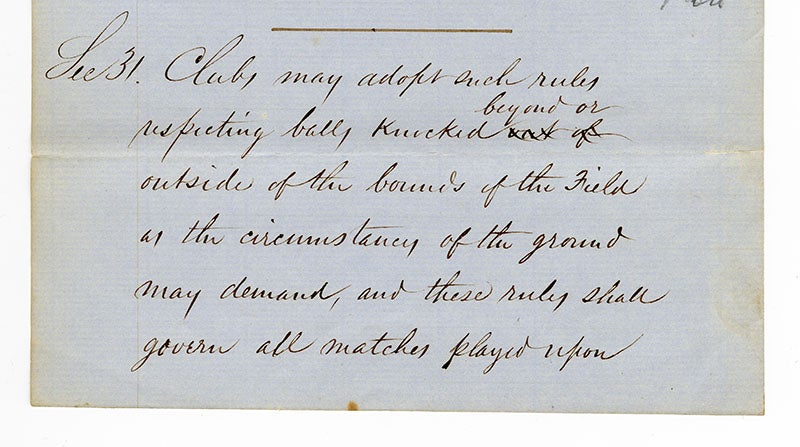 Sec 31. Clubs may adopt such rules
beyond or
respecting balls knocked out of
outside of the bounds of the Field
as the circumstances of the ground
may demand, and these rules shall
govern all matches played upon